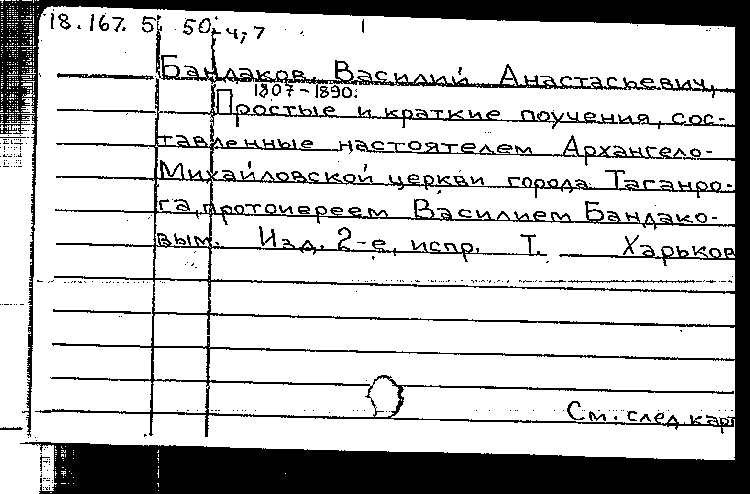 18.167.5. 50-4,7
Бандаков, Василий Анастасьевич,
1807-1890.
Простые и краткие поучения, сос-
тавленные настоятелем Архангело-
Михайловской церкви города Таганро-
га, протоиереем Василием Бандако-
вым. Изд. 2-е, испр. Т. — Харьков
См. след. карт